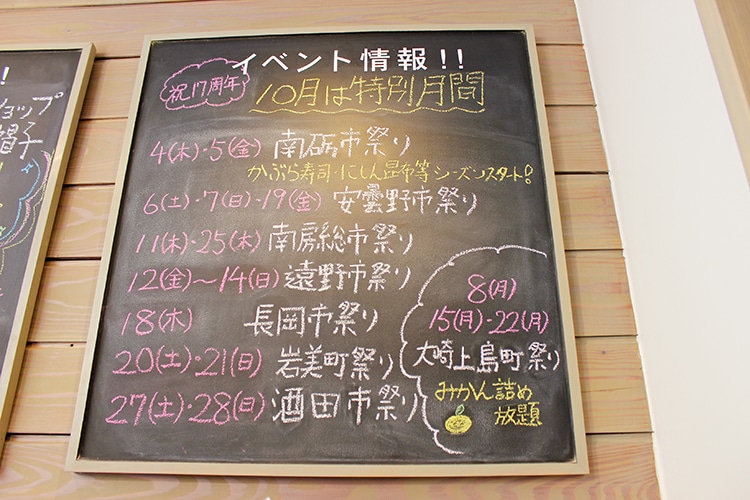 !
ョップ
帽子
イベント情報!!
祝17周年
10月は特別月間
4(木)・5(金) 南砺市祭り
かぶら寿司・にしん昆布等シーズンスタート!
6(土)・7(日)・19(金) 安曇野市祭り
11(木)・25(木) 南房総市祭り
12(金)～14(日) 遠野市祭り
18(木) 長岡市祭り
20(土)・21(日) 岩美町祭り
27(土)・28(日) 酒田市祭り
8(月)
15(月)・22(月)
大崎上島町祭り
みかん詰め
放題